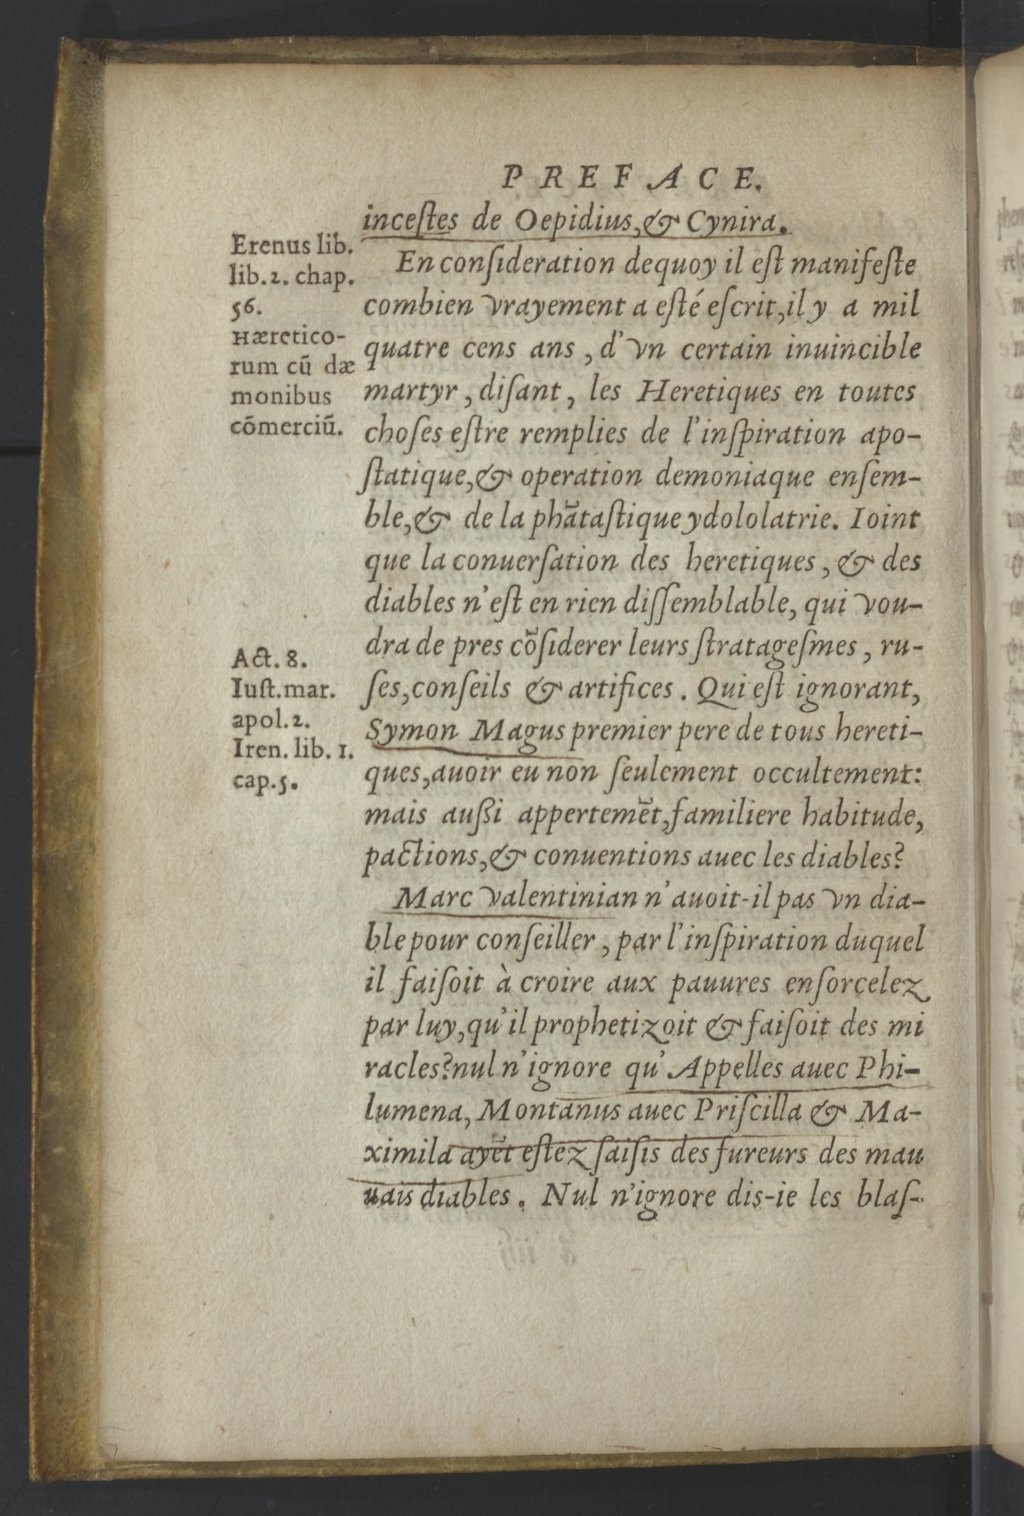 PREFACE.
inceſtes de Oepidius, & Cynira.
Erenus lib.
lib.2. chap.
56.
Hæretico-
rum cū dæ
monibus
cōmerciū.
En conſideration dequoy il eſt manifeſte
combien vrayement a eſté eſcrit, il y a mil
quatre cens ans, d'vn certain inuincible
martyr, diſant, les Heretiques en toutes
choſes eſtre remplies de l'inſpiration apo-
ſtatique, & operation demoniaque enſem-
ble, & de la phātaſtique ydololatrie. Ioint
que la conuerſation des heretiques, & des
diables n'eſt en rien diſſemblable, qui vou-
dra de pres cōſiderer leurs ſtratageſmes, ru-
ſes, conſeils & artifices. Qui eſt ignorant,
Symon Magus premier pere de tous hereti-
ques, auoir eu non ſeulement occultement:
mais auſſi appertemēt, familiere habitude,
pactions, & conuentions auec les diables?
Act. 8.
Iuſt. mar.
apol.2.
Iren. lib. 1.
cap.5.
Marc Valentinian n'auoit-il pas vn dia-
ble pour conſeiller, par l'inſpiration duquel
il faiſoit à croire aux pauures enſorcelez
par luy, qu'il prophetizoit & faiſoit des mi
racles? nul n'ignore qu'Appelles auec Phi-
lumena, Montanus auec Priſcilla & Ma-
ximila ayēt eſtez ſaiſis des fureurs des mau
uais diables. Nul n'ignore dis-ie les blaſ-